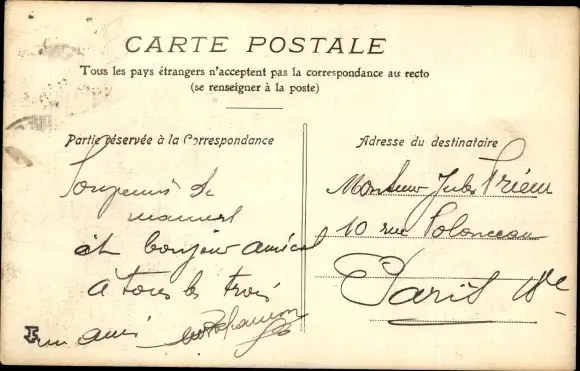 CARTE POSTALE
Tous les pays étrangers n'acceptent pas la correspondance au recto
(se renseigner à la poste)
Partie réservée à la Correspondance
Adresse du destinataire
Souvenirs de
et bonjour amical
à tous les trois
un ami
Monsieur Jules Priem
10 rue Polonceau
Paris 18e